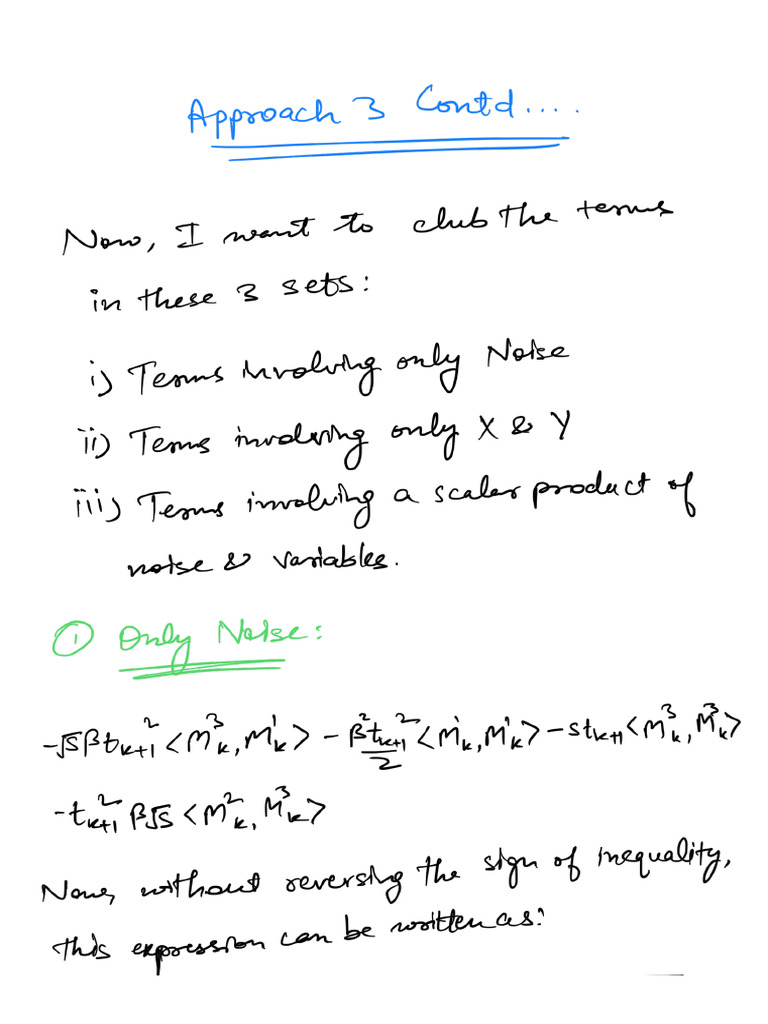 Approach 3 Contd....
Now, I want to club the terms
in these 3 sets:
i) Terms involving only Noise
ii) Terms involving only X & Y
iii) Terms involving a scaler product of
noise & variables.
① Only Noise:
-√s β t_{k+1}^2 <M_k^3, M_k^1> - β^2 t_{k+1}^2 / 2 <M_k^1, M_k^1> - s t_{k+1} <M_k^3, M_k^3>
- t_{k+1}^2 β√s <M_k^2, M_k^3>
Now, without reversing the sign of inequality,
this expression can be written as: